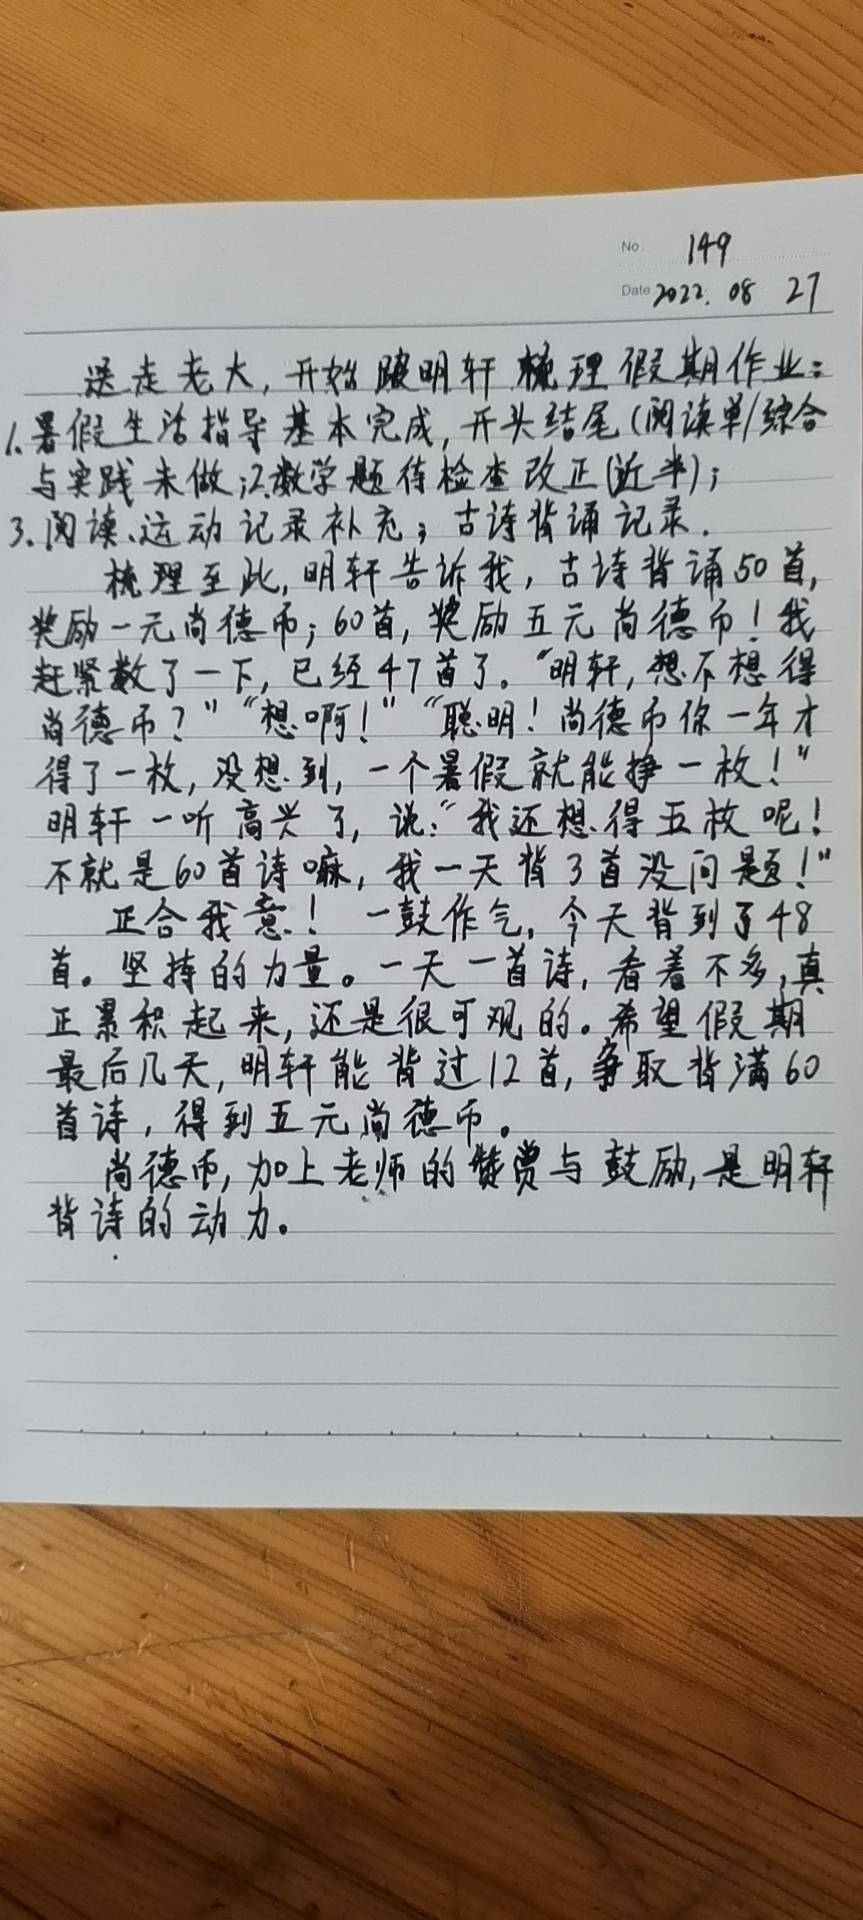 No. 149
Date 2022. 08 27
送走老大，开始陪明轩梳理假期作业：
1.暑假生活指导基本完成，开头结尾（阅读单/综合
与实践未做；2.数学题待检查改正（近半）；
3.阅读、运动记录补充；古诗背诵记录.
梳理至此，明轩告诉我，古诗背诵50首，
奖励一元尚德币；60首，奖励五元尚德币！我
赶紧数了一下，已经47首了。“明轩，想不想得
尚德币？”“想啊！”“聪明！尚德币你一年才
得了一枚，没想到，一个暑假就能挣一枚！”
明轩一听高兴了，说：“我还想得五枚呢！
不就是60首诗嘛，我一天背3首没问题！”
正合我意！一鼓作气，今天背到了48
首。坚持的力量。一天一首诗，看着不多，真
正累积起来，还是很可观的。希望假期
最后几天，明轩能背过12首，争取背满60
首诗，得到五元尚德币。
尚德币，加上老师的赞赏与鼓励，是明轩
背诗的动力。